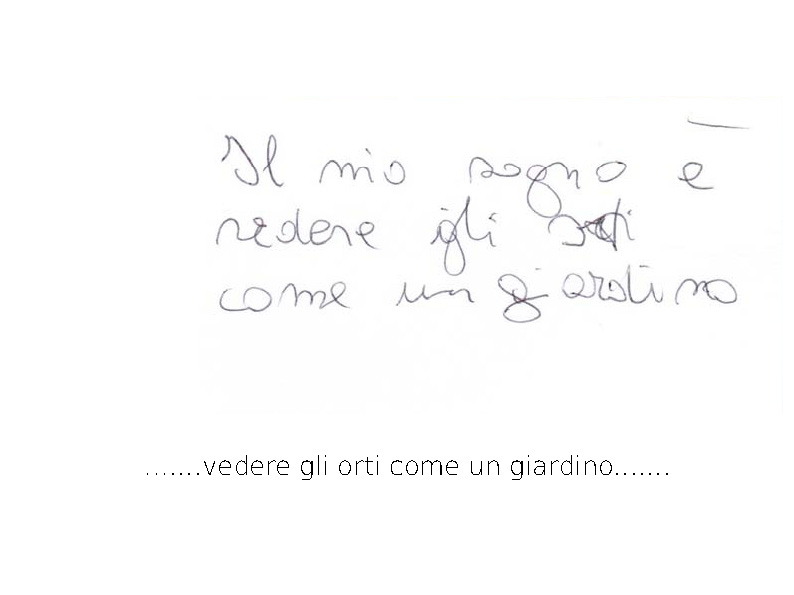 Il mio sogno è
vedere gli orti
come un giardino
.......vedere gli orti come un giardino.......